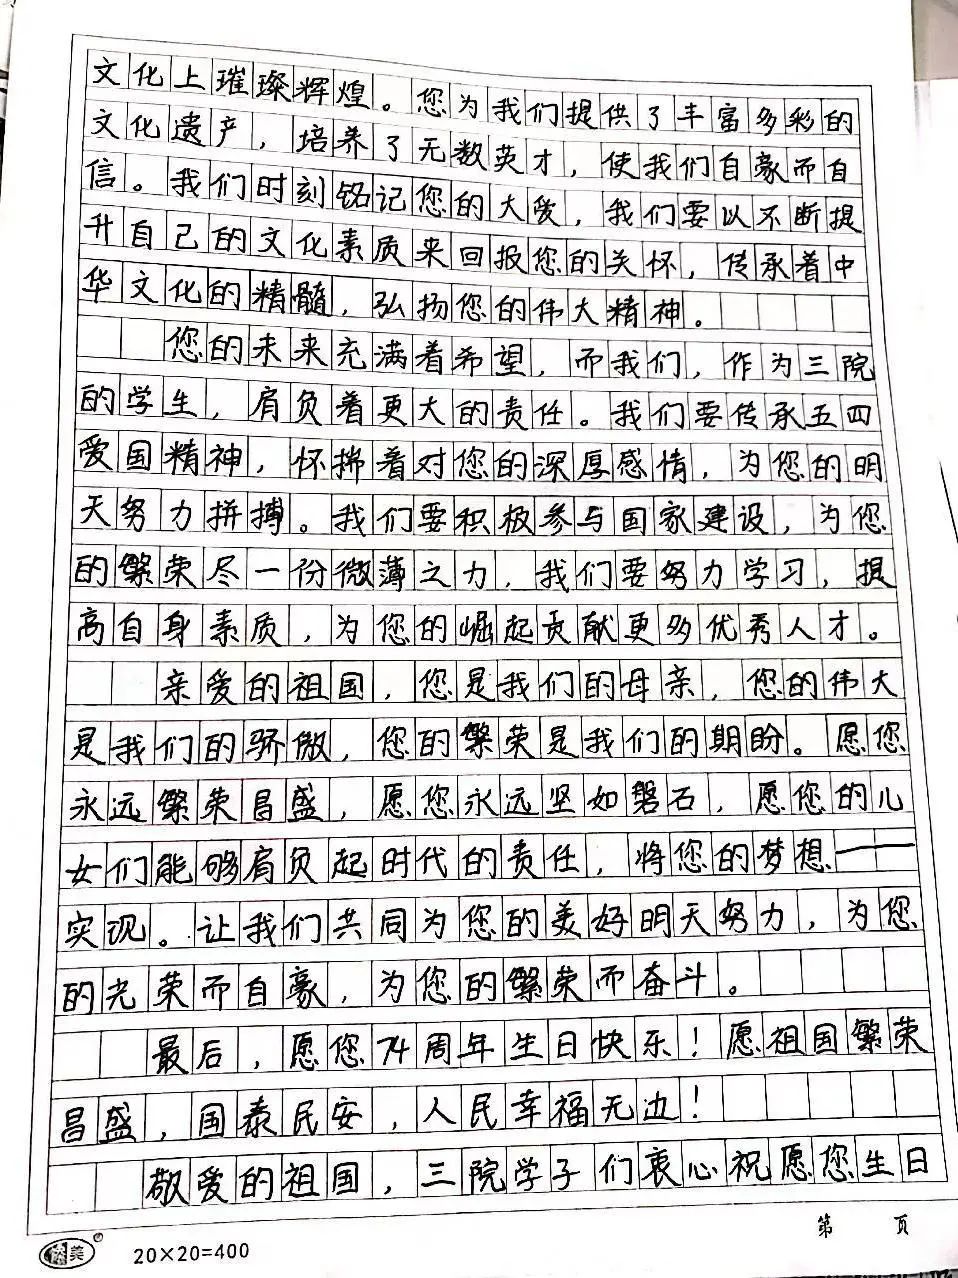 文化上璀璨辉煌。您为我们提供了丰富多彩的
文化遗产，培养了无数英才，使我们自豪而自
信。我们时刻铭记您的大爱，我们要以不断提
升自己的文化素质来回报您的关怀，传承着中
华文化的精髓，弘扬您的伟大精神。
您的未来充满着希望，而我们，作为三院
的学生，肩负着更大的责任。我们要传承五四
爱国精神，怀揣着对您的深厚感情，为您的明
天努力拼搏。我们要积极参与国家建设，为您
的繁荣尽一份微薄之力，我们要努力学习，提
高自身素质，为您的崛起贡献更多优秀人才。
亲爱的祖国，您是我们的母亲，您的伟大
是我们的骄傲，您的繁荣是我们的期盼。愿您
永远繁荣昌盛，愿您永远坚如磐石，愿您的儿
女们能够肩负起时代的责任，将您的梦想一一
实现。让我们共同为您的美好明天努力，为您
的光荣而自豪，为您的繁荣而奋斗。
最后，愿您74周年生日快乐！愿祖国繁荣
昌盛，国泰民安，人民幸福无边！
敬爱的祖国，三院学子们衷心祝愿您生日
第 页
美 20×20=400